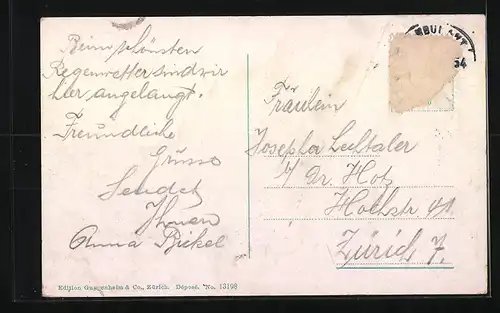 Beim schönsten
Regenwetter sind wir
hier angelangt.
Freundliche
Grüsse
Sendet
Ihnen
Anna Bickel
Fräulein
Josepha Lechtaler
Dr. Hotz
Hochstr 41
Zürich 7.
AMBULANT
54
Edition Guggenheim & Co., Zürich. Déposé. No. 13198